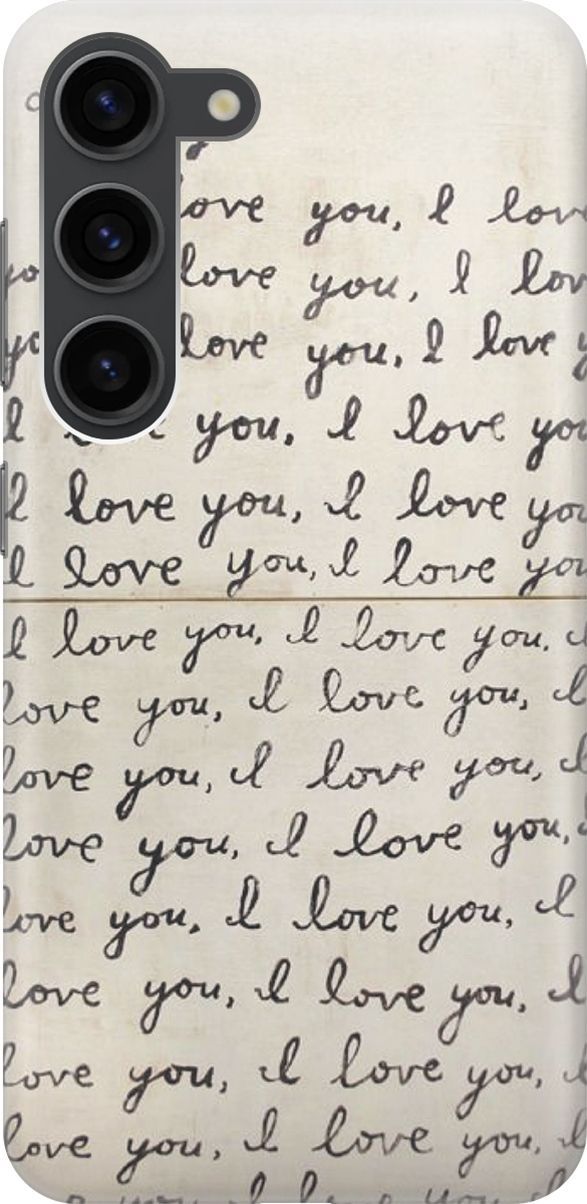 love you, I love
love you, I love
love you, I love
I you, I love you
I love you, I love you
I love you, I love you
I love you, I love you,
love you, I love you, I
love you, I love you, I
love you, I love you,
love you, I love you, I
love you, I love you, I
love you, I love you,
love you, I love you, I